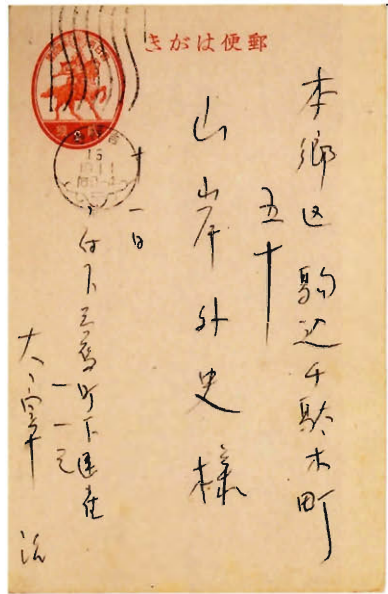 きがは便郵
本郷区駒込千駄木町
五十
山岸外史様
十一日
府下三鷹町下連雀
一一三
太宰治